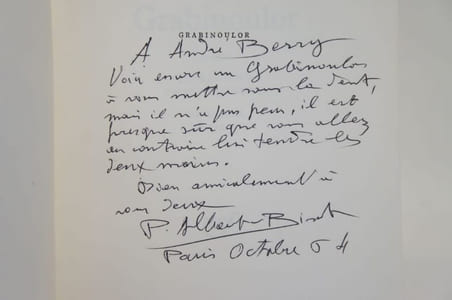 GRABINOULOR
À André Berry
Voici encore un Grabinoulor
à vous mettre sous la dent,
mais il n'a pas peur, il est
presque sûr que vous allez
au contraire lui tendre les
deux mains.
Bien amicalement à
vous deux
P. Albert-Birot
Paris Octobre 64